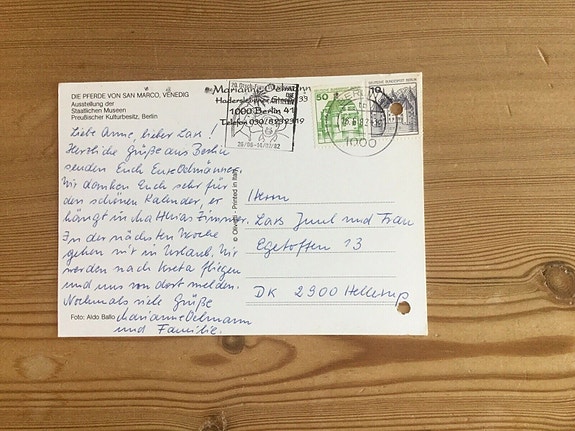 DIE PFERDE VON SAN MARCO, VENEDIG
Ausstellung der
Staatlichen Museen
Preußischer Kulturbesitz, Berlin
Liebe Anne, lieber Lars!
Herzliche Grüße aus Berlin
senden Euch Eure Oelmänner.
Wir danken Euch sehr für
den schönen Kalender, er
hängt in Matthias Zimmer.
In der nächsten Woche
gehen wir in Urlaub. Wir
werden nach Kreta fliegen
und uns von dort melden.
Nochmals viele Grüße
Marianne Oelmann
und Familie.
Foto: Aldo Ballo
© Olivetti - Printed in Italy
Marianne Oelmann
1000 Berlin 41
Telefon 030/8232319
26/06-14/07/82
50
10
DEUTSCHE BUNDESPOST BERLIN
1000
Herrn
Lars Juul und Frau
Egetoften 13
DK 2900 Hellerup